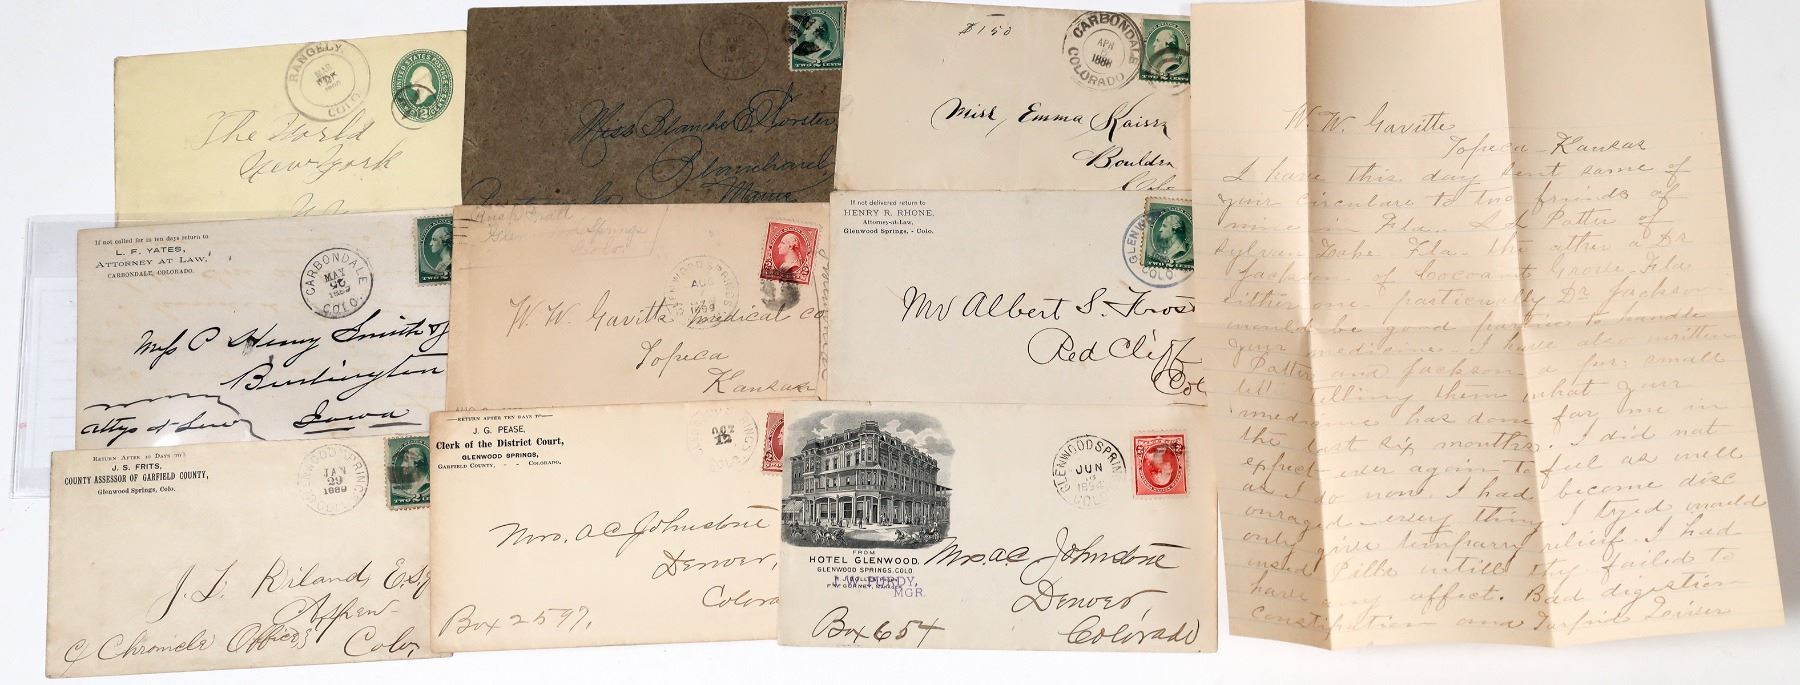 RANGELY,
MAR
COLO.
UNITED STATES POSTAGE
2 CENTS
The World
New York
N.Y.
TWO 2 CENTS
Miss Blanche E. Forster,
Blanchard,
Maine
$1.50
CARBONDALE
APR
1888
COLORADO
TWO 2 CENTS
Miss Emma Kaiser
Boulder
Colo
If not called for in ten days return to
L. F. YATES,
ATTORNEY AT LAW,
CARBONDALE, COLORADO.
CARBONDALE
MAY
25
1889
COLO.
Mess P Henry Smith &
Burlington
Iowa
Attys at Law
Glenwood Springs
GLENWOOD SPRINGS
AUG
1899
W. W. Gavitts medical Co
Topeca
Kansas
If not delivered return to
HENRY R. RHONE,
Attorney-at-Law,
Glenwood Springs, - Colo.
GLENW
COLO
TWO 2 CENTS
Mr Albert S. Frost
Red Cliff
Col
RETURN AFTER 10 DAYS TO
J. S. FRITS,
COUNTY ASSESSOR OF GARFIELD COUNTY,
Glenwood Springs, Colo.
GLENWOOD SPRINGS
JAN
29
1889
COLO.
TWO 2 CENTS
J. L. Riland, Esq
Aspen-
C/ Chronicle Office,
Colo,
RETURN AFTER TEN DAYS TO
J. G. PEASE,
Clerk of the District Court,
GLENWOOD SPRINGS,
GARFIELD COUNTY, - - COLORADO.
OCT
12
Mrs. A C Johnstone
Denver,
Colora
Box 2597,
FROM
HOTEL GLENWOOD.
GLENWOOD SPRINGS, COLO.
PURDY,
MGR.
GLENWOOD SPRIN
JUN
1894
COLO
Mrs. A C Johnstone
Denver,
Colorado.
Box 654
W. W. Gavitte
Topeca - Kansas
I have this day sent some of
your circulars to two friends of
mine in Fla. Patter of
Sylvan Lake Fla. the other a Dr
Jackson of Cocoanut Grove Fla
either one, particually Dr Jackson-
would be good parties to handle
your medicine - I have also written
Patter and Jackson a few small
telling them what your
medicine has done for me in
the last six months. I did not
expect ever again to feel as well
as I do now. I had become disc
ouraged - every thing I tryed would
only give temparary relief. I had
used Pills untill they failed to
have any effect. Bad digestion
constipation and Turpid Leiver